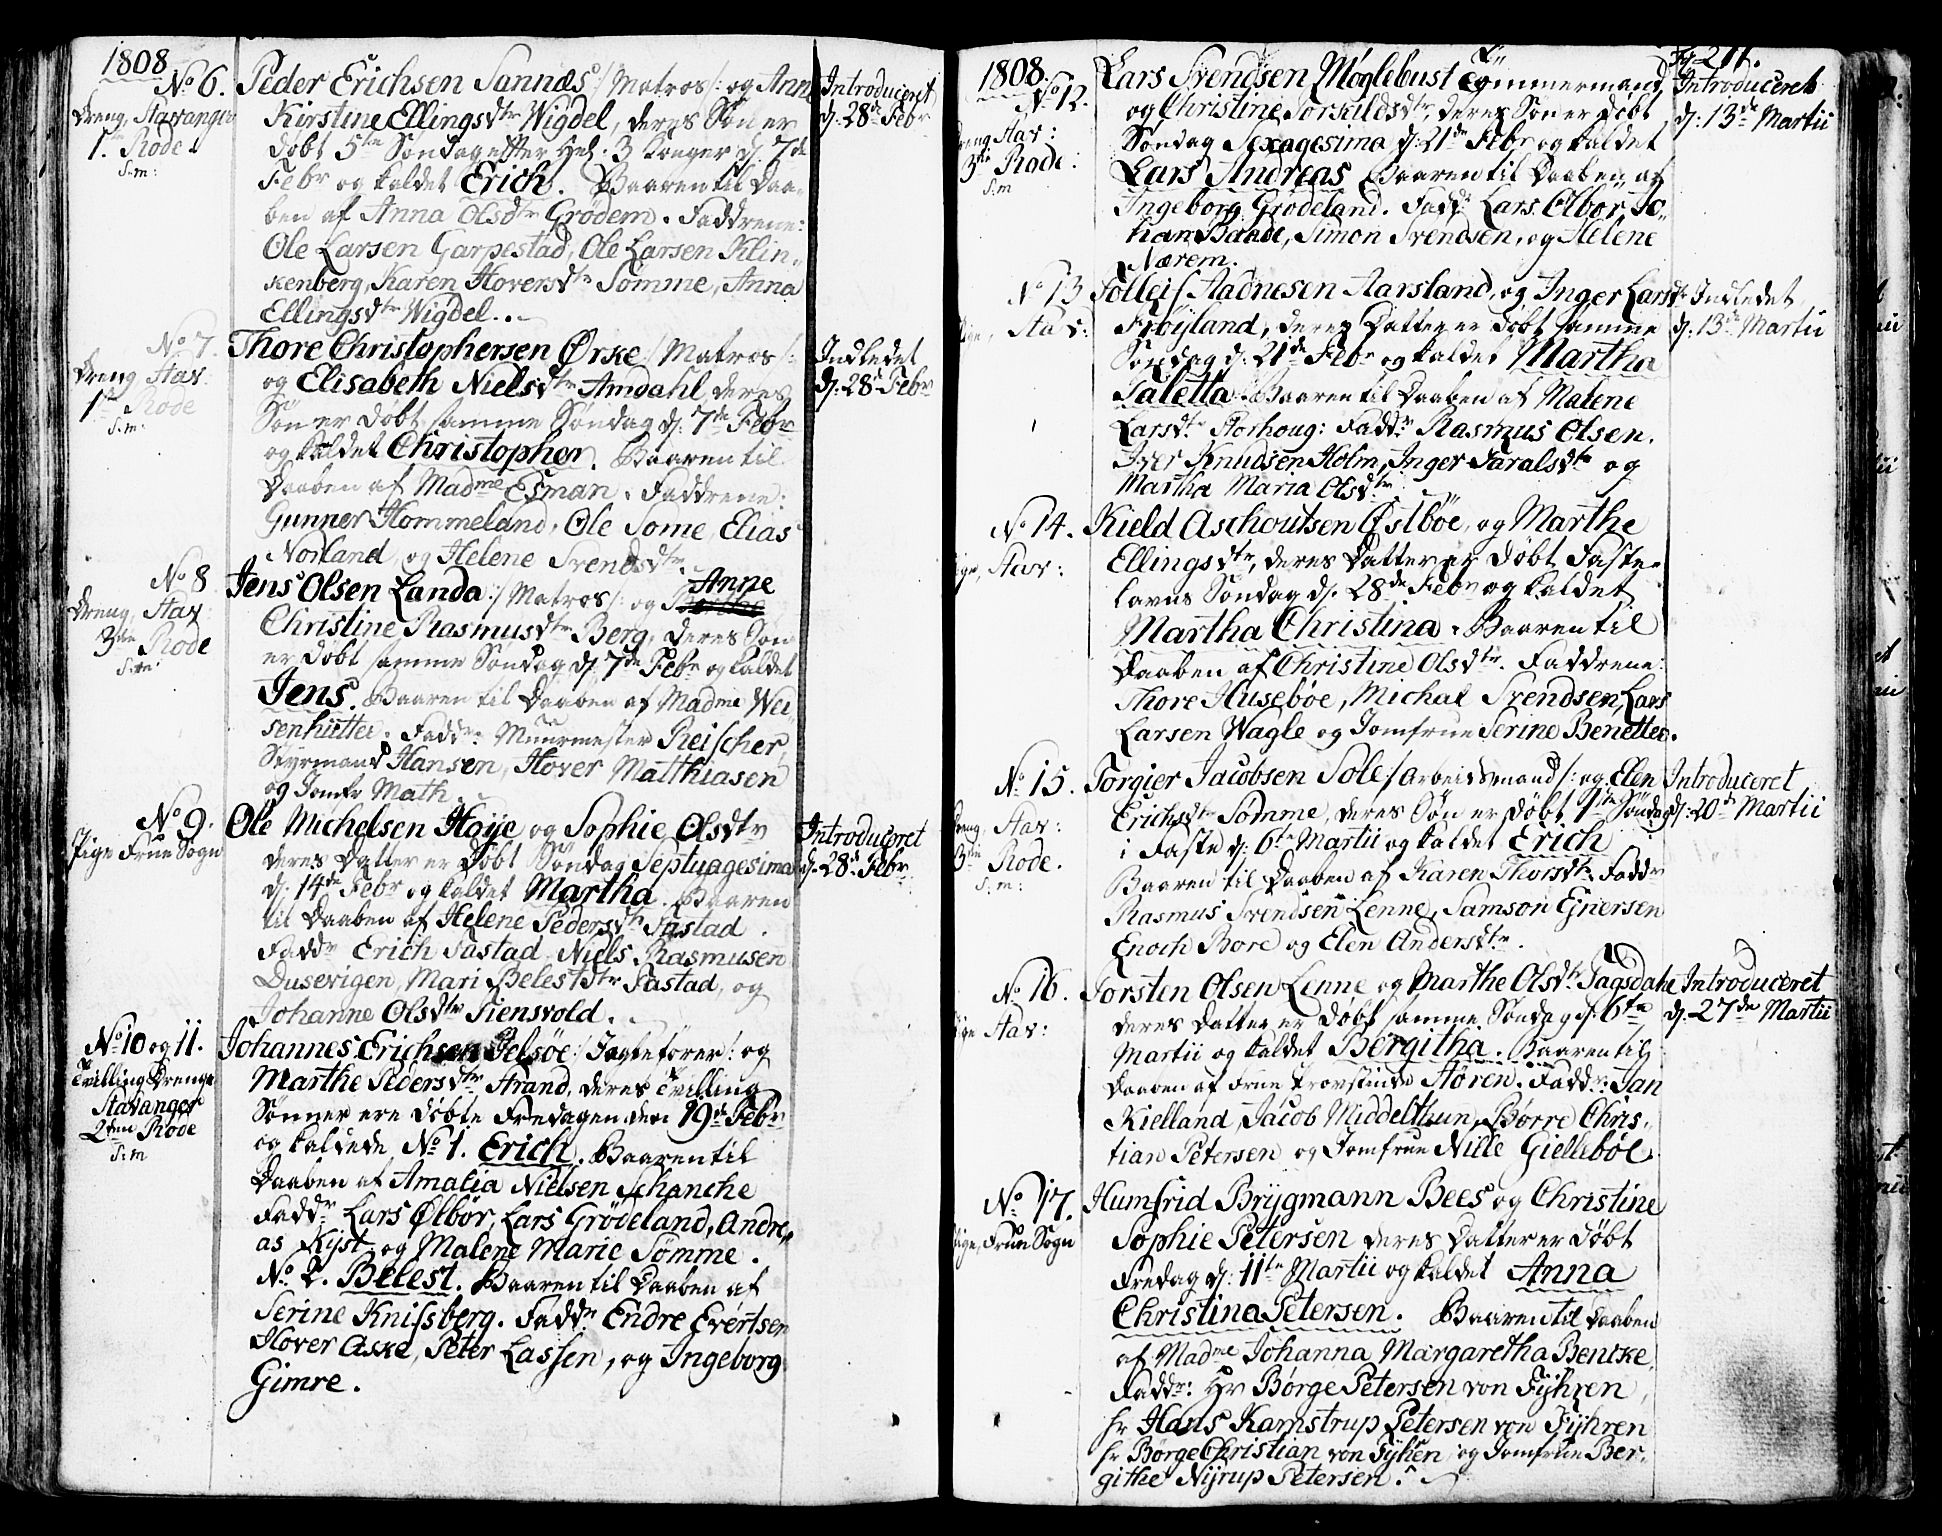 1808
No 6.
Dreng, Stavanger
1. Rode.
S:m:
Peder Erichsen Sannæs /: Matros :/ og Anne
Kirstine Ellingsdtr Wigdel, deres Søn er
døbt 5te Søndag efter Hel: 3 Konger d: 7de
Febr og kaldet Erich. Baaren til Daa-
ben af Anna Olsdtr Grödem. Faddrene:
Ole Larsen Garpestad, Ole Larsen Klin-
kenberg, Karen Hoversdtr Sömme, Anna
Ellingsdtr Wigdel.
Introduceret
d: 28de Febr
No 7.
Dreng Stav:
1te Rode
S:m:
Thore Christophersen Ørke /: Matros :/
og Elisabeth Nielsdtr Amdahl, deres
Søn er døbt samme Søndag d: 7de Febr
og kaldet Christopher. Baaren til
Daaben af Madme Esman. Faddrene:
Gunner Hommeland, Ole Some, Elias
Norland og Helene Svendsdtr
Indledet
d: 28de Febr
No 8
Dreng, Stav:
3die Rode
S:m:
Anne
Jens Olsen Landa /: Matros :/ og
Christine Rasmusdtr Berg, deres Søn
er døbt samme Søndag d: 7de Febr og kaldet
Jens. Baaren til Daaben af Madme Wei-
senhütter. Faddr: Muurmester Reischer,
Styrmand Hansen, Hover Matthiasen
og Jomfr Math
No 9.
Pige Frue Sogn
Ole Michelsen Höÿe og Sophie Olsdtr
deres Datter er døbt Søndag Septuagesima
d: 14de Febr og kaldet Martha. Baaren
til Daaben af Helene Pedersdtr Tastad.
Faddr Erich Tastad, Niels Rasmusen
Dusevigen, Mari Belestdtr Tastad, og
Johanne Olsdtr Tiensvold.
Introduceret
d: 28de Febr
No 10 og 11.
Tvilling Drenge
Stavanger
2den Rode
S:m
Johannes Erichsen Jelsøe /: Jagtefører :/ og
Marthe Pedersdtr Strand, deres Tvilling
Sønner ere døbte Fredagen den 19de Febr
og kaldede No 1. Erich. Baaren til
Daaben af Amalia Nielsen Schanche
Faddr: Lars Ølbør, Lars Grödeland, Andre-
as Kyst og Malene Marie Sömme.
No 2. Belest. Baaren til Daaben af
Serine Knissberg. Faddr: Endre Evertsen
Hover Aske, Peter Lassen, og Ingeborg
Gimre.
1808.
No 12.
Dreng Stav:
3die Rode.
S:m
Lars Svendsen Møglebust Tömmermand
og Christine Torkildsdtr, deres Søn er døbt
Søndag Sexagesima d: 21de Febr og kaldet
Lars Andreas Baaren til Daaben af
Ingeborg Grödeland. Faddr: Lars Ølbør, Jo-
han Baade, Simon Svendsen, og Helene
Nærem.
Introduceret
d: 13de Martii
No 13
Pige, Stav:
Tolleif Aadnesen Aarsland, og Inger Larsdtr
Frøÿland, deres Datter er døbt samme
Søndag d: 21de Febr og kaldet Martha
Taletta. Baaren til Daaben af Malene
Larsdtr Storhoug: Faddr: Rasmus Olsen.
Iver Knudsen Holm, Inger Taralsdtr og
Martha Maria Olsdtr
Indledet
d: 13de Martii
No 14.
Pige, Stav:
Kield Aschoutsen Østbøe, og Marthe
Ellingsdtr, deres Datter er døbt Faste-
lavns Søndag d: 28de Febr og kaldet
Martha Christina. Baaren til
Daaben af Christine Olsdtr. Faddrene:
Thore Husebøe, Michal Svendsen, Lars
Larsen Wagle og Jomfrue Serine Benetter.
No 15.
Dreng, Stav:
3die Rode.
S:m:
Torgier Jacobsen Sole /: Arbeidsmand :/ og Elen
Erichsdtr Sömme, deres Søn er døbt 1te Søndag
i Faste d: 6te Martii og kaldet Erich
Baaren til Daaben af Karen Thorsdtr. Faddr
Rasmus Svendsen Lenne, Samson Ejnersen
Enoch Bore og Elen Andersdtr.
Introduceret
d: 20de Martii
No 16.
Pige Stav:
Torsten Olsen Lenne og Marthe Olsdtr Tagsdahl
deres Datter er døbt samme Søndag d: 6te
Martii og kaldet Bergitha. Baaren til
Daaben af Frue Provstinde Støren. Faddr: Jan
Kielland, Jacob Middelthun, Børre Chris-
tian Petersen og Jomfrue Nille Giellebøl
Introduceret
d: 27de Martii
No 17.
Pige, Frue Sogn
Humfrid Brÿgmann Bees og Christine
Sophie Petersen deres Datter er døbt
Fredag d: 11te Martii og kaldet Anna
Christina Petersen. Baaren til Daaben
af Madme Johanna Margaretha Bentke,
Faddr: Hr Børge Petersen von Fÿhren,
hr Hans Kamstrup Petersen von Fÿhren
hr Børge Christian von Fÿhren, og Jomfrue Ber-
githe Nÿrup Petersen.